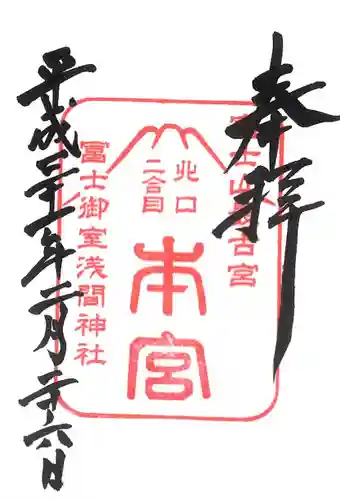 奉拝
富士山最古宮
北口
二合目
本宮
冨士御室浅間神社
平成二十一年二月二十六日